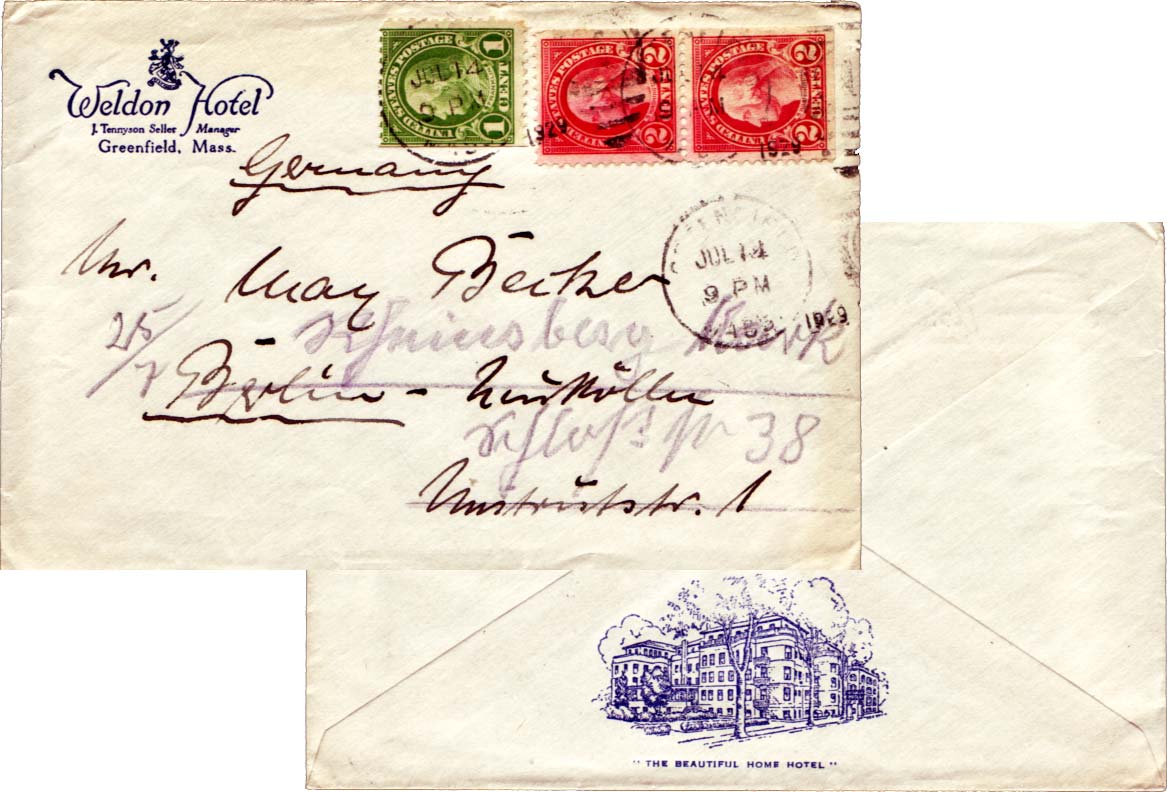 Weldon Hotel
J. Tennyson Seller Manager
Greenfield, Mass.
UNITED STATES POSTAGE
1 CENT 1
UNITED STATES POSTAGE
2 CENTS 2
UNITED STATES POSTAGE
2 CENTS 2
JUL 14
9 PM
1929
1929
Germany
GREENFIELD
JUL 14
9 PM
MASS.
1929
Mr. Max Becker
25/7
Berlin - Neukölln
Schloßstr 38
Unstrutstr. 1
"THE BEAUTIFUL HOME HOTEL"